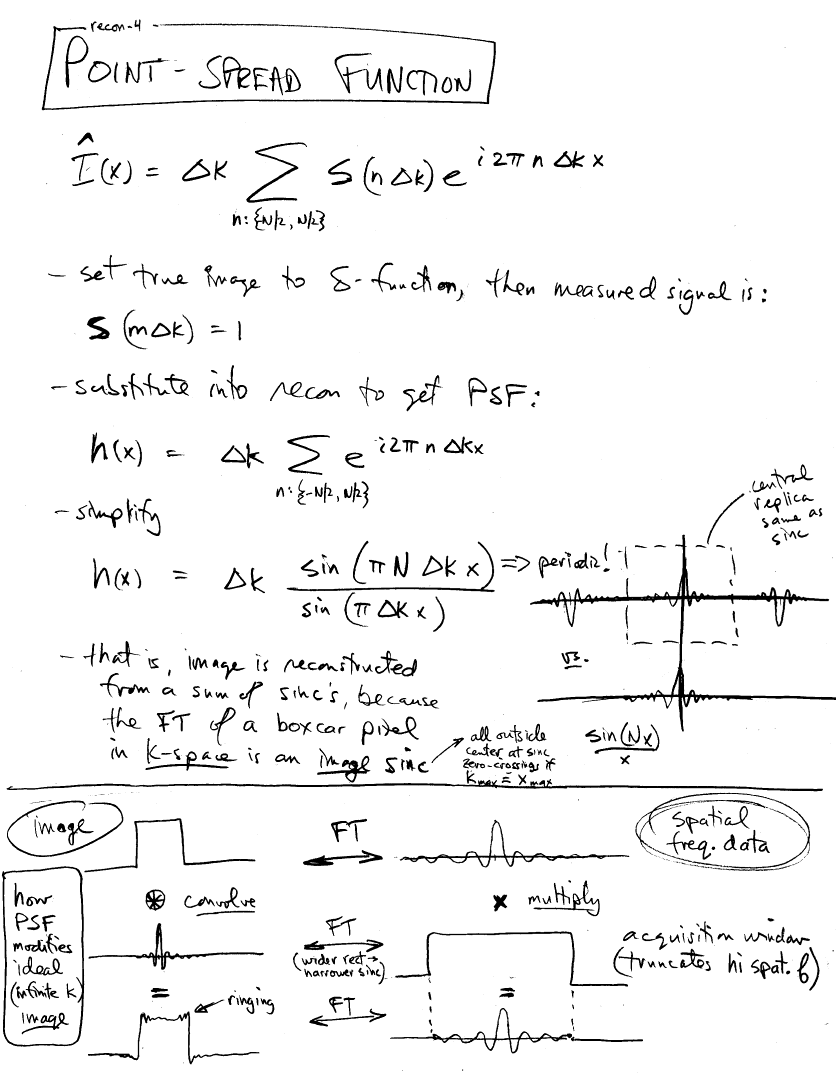 recon-4
POINT-SPREAD FUNCTION
Î(x) = Δk ∑ S(nΔk) e^{i2πnΔkx}
n:{N/2, N/2}
- set true image to δ-function, then measured signal is:
S(mΔk) = 1
- substitute into recon to get PSF:
h(x) = Δk ∑ e^{i2πnΔkx}
n:{-N/2, N/2}
- simplify
h(x) = Δk sin(πNΔkx) / sin(πΔkx) => periodic!
central
replica
same as
sinc
vs.
sin(Nx)
x
- that is, image is reconstructed
from a sum of sinc's, because
the FT of a boxcar pixel
in k-space is an image sinc
all outside
center at sinc
zero-crossings if
kmax = xmax
image
FT
spatial
freq. data
how
PSF
modifies
ideal
(infinite k)
image
⊛ convolve
× multiply
FT
(wider rect →
narrower sinc)
acquisition window
(truncates hi spat. f)
=
ringing
FT
=